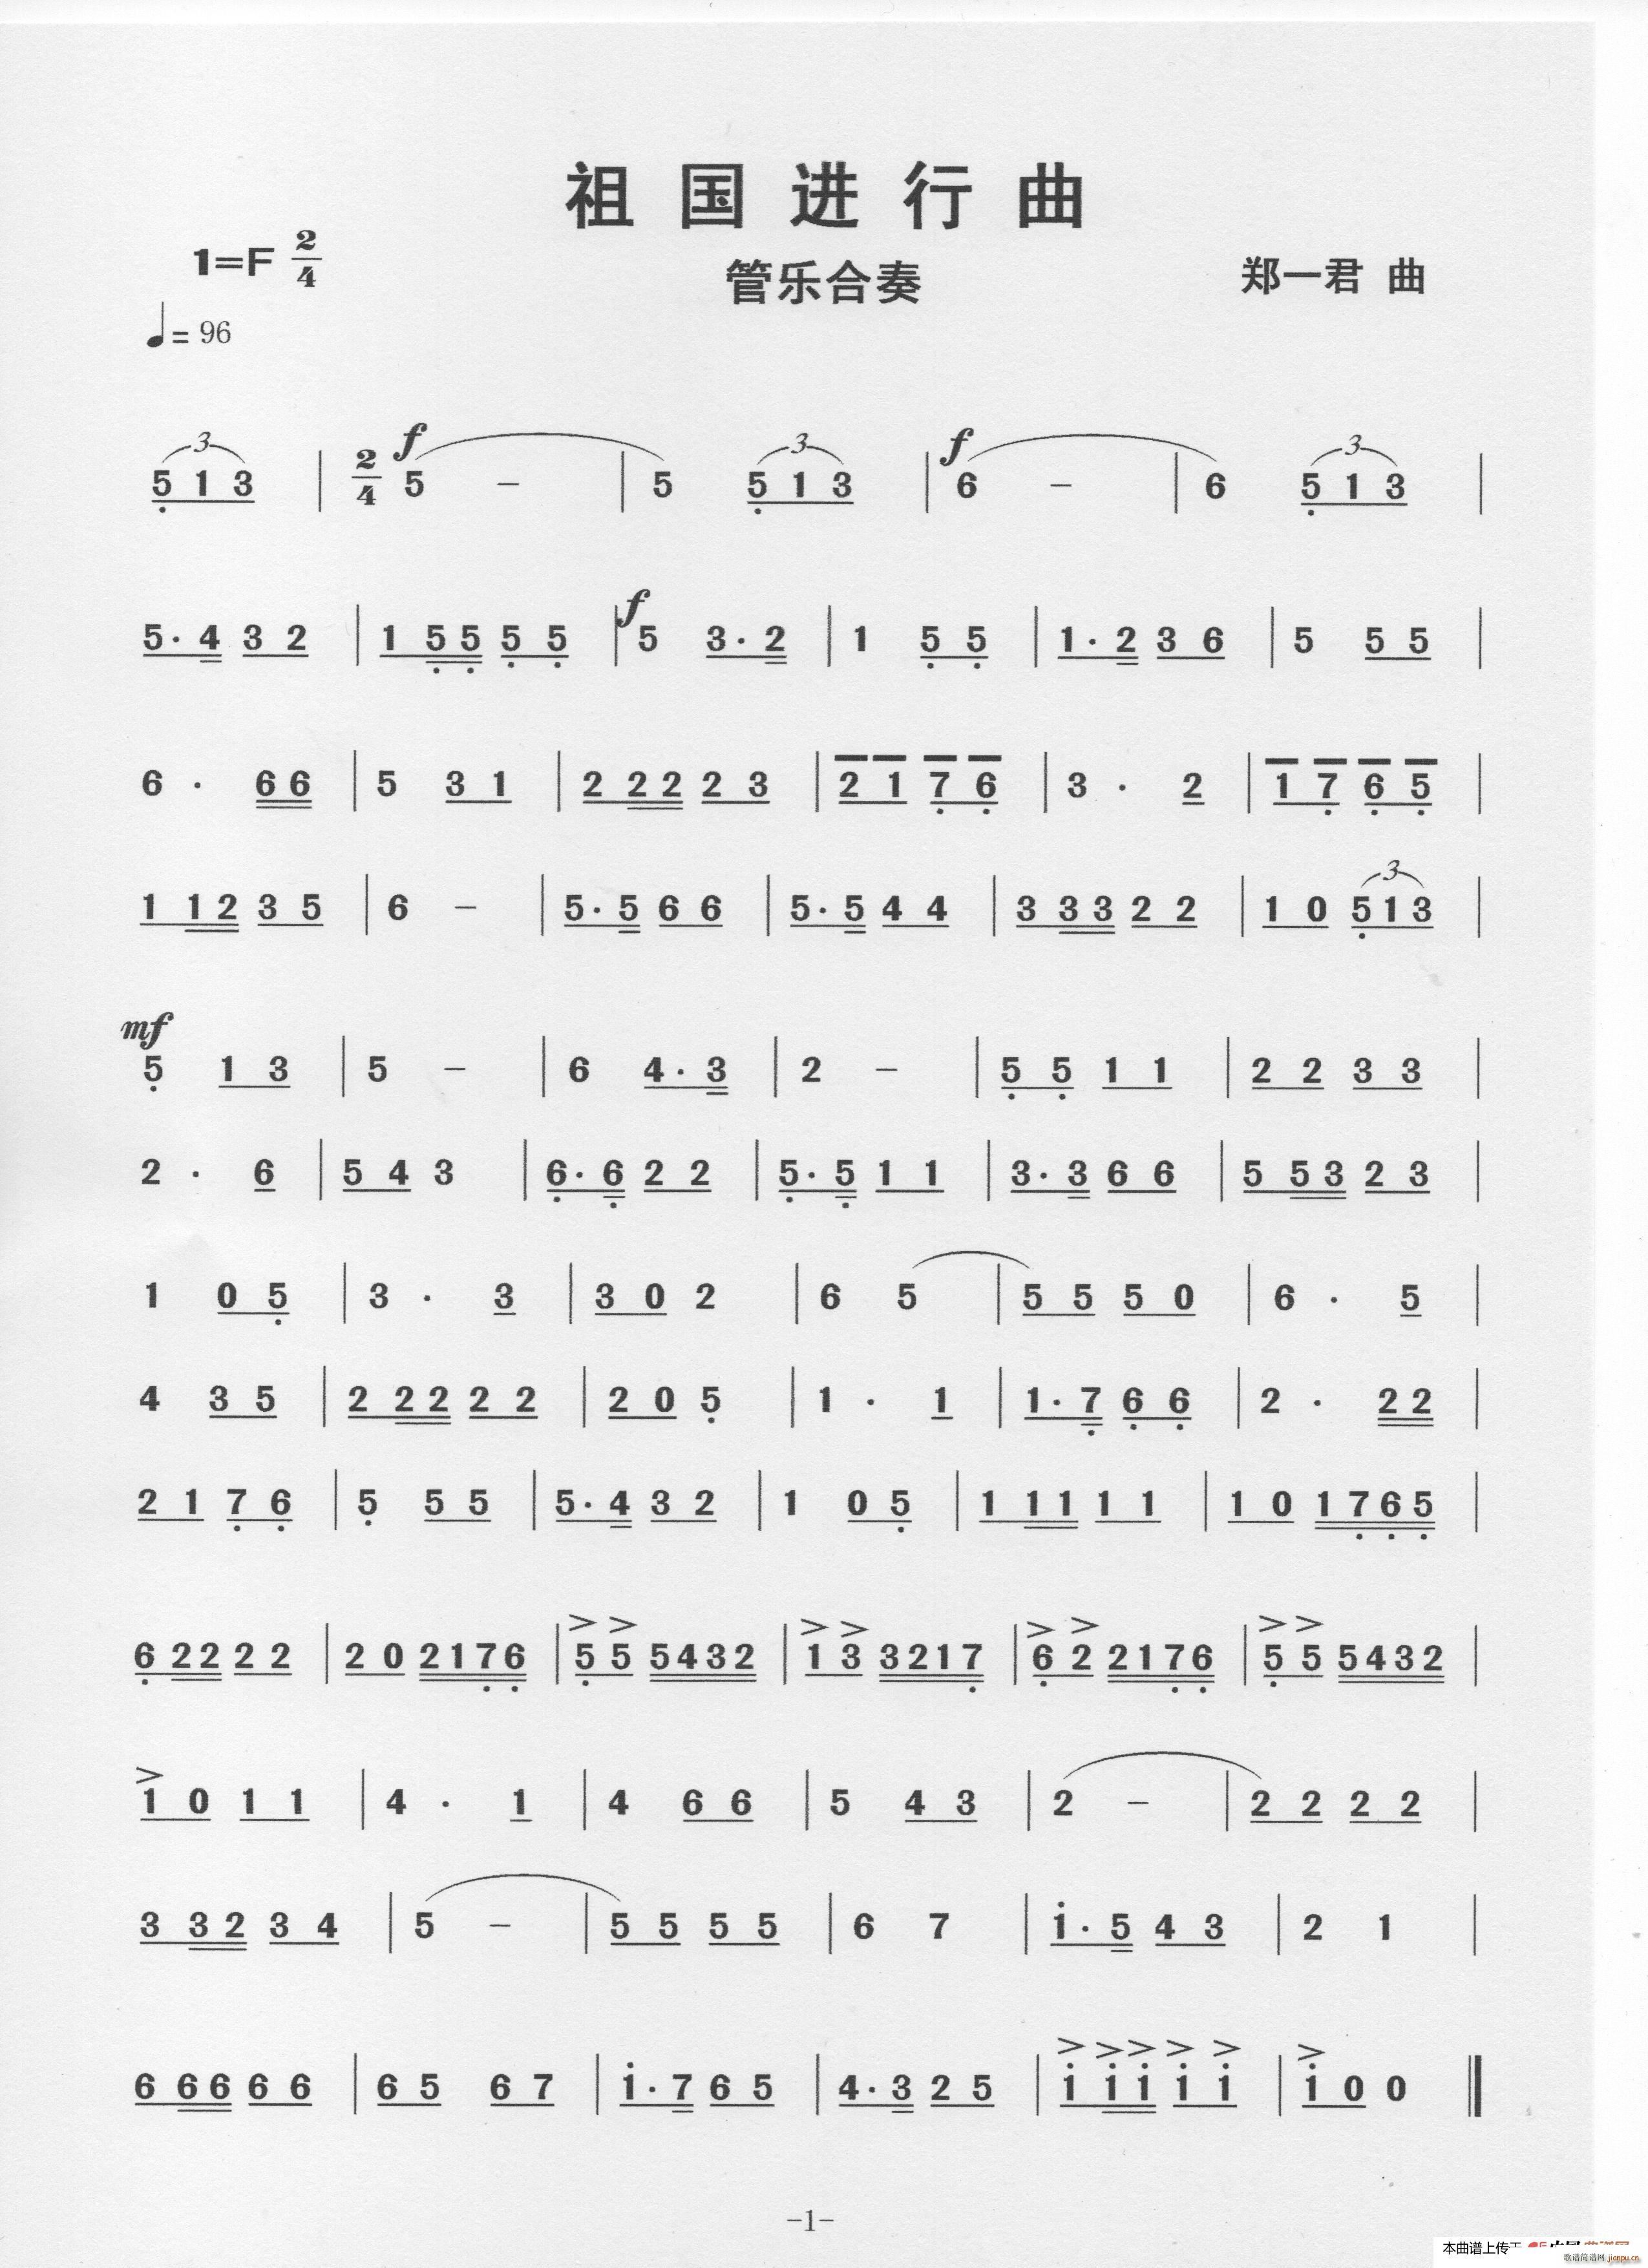 祖国进行曲
1=F 2/4
管乐合奏
郑一君 曲
♩= 96
5 1 3 | 2/4 f 5 – | 5 5 1 3 | f 6 – | 6 5 1 3 |
5· 4 3 2 | 1 5 5 5 5 | f 5 3· 2 | 1 5 5 | 1· 2 3 6 | 5 5 5 |
6 · 6 6 | 5 3 1 | 2 2 2 2 3 | 2 1 7 6 | 3 · 2 | 1 7 6 5 |
1 1 2 3 5 | 6 – | 5· 5 6 6 | 5· 5 4 4 | 3 3 3 2 2 | 1 0 5 1 3 |
mf
5 1 3 | 5 – | 6 4· 3 | 2 – | 5 5 1 1 | 2 2 3 3 |
2 · 6 | 5 4 3 | 6· 6 2 2 | 5· 5 1 1 | 3· 3 6 6 | 5 5 3 2 3 |
1 0 5 | 3 · 3 | 3 0 2 | 6 5 | 5 5 5 0 | 6 · 5 |
4 3 5 | 2 2 2 2 2 | 2 0 5 | 1 · 1 | 1· 7 6 6 | 2 · 2 2 |
2 1 7 6 | 5 5 5 | 5· 4 3 2 | 1 0 5 | 1 1 1 1 1 | 1 0 1 7 6 5 |
6 2 2 2 2 | 2 0 2 1 7 6 | 5 5 5 4 3 2 | 1 3 3 2 1 7 | 6 2 2 1 7 6 | 5 5 5 4 3 2 |
1 0 1 1 | 4 · 1 | 4 6 6 | 5 4 3 | 2 – | 2 2 2 2 |
3 3 2 3 4 | 5 – | 5 5 5 5 | 6 7 | 1· 5 4 3 | 2 1 |
6 6 6 6 6 | 6 5 6 7 | 1· 7 6 5 | 4· 3 2 5 | 1 1 1 1 1 | 1 0 0 ‖
-1-
本曲谱上传于
歌谱简谱网 jianpu.cn